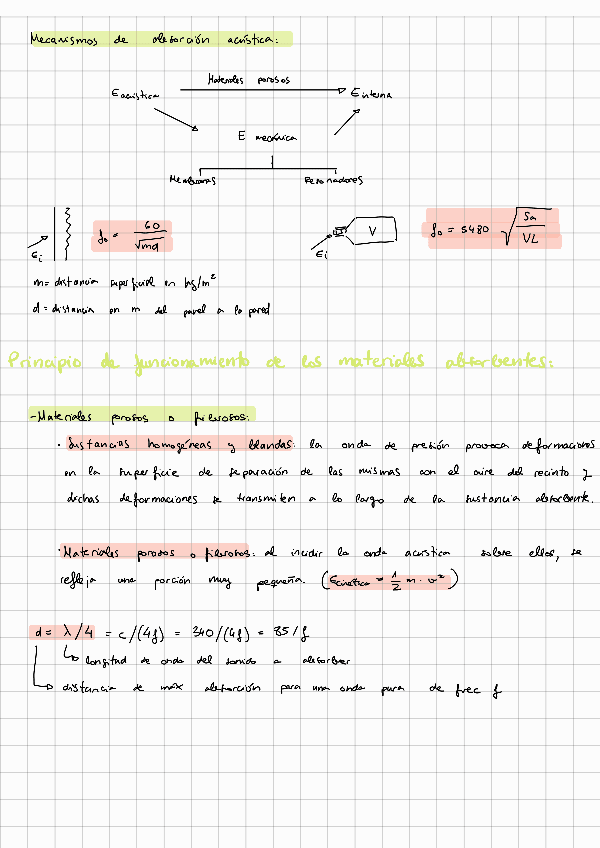 Mecanismos de absorción acústica:
Materiales porosos
E acústica
E interna
E mecánica
Membranas
Resonadores
f₀ = 60 / √md
V
f₀ = 5480 √(Sa / VL)
Ei
Ei
m = distancia superficial en kg/m²
d = distancia en m del panel a la pared
Principio de funcionamiento de los materiales absorbentes:
- Materiales porosos o fibrosos:
· Sustancias homogéneas y blandas: la onda de presión provoca deformaciones
en la superficie de separación de las mismas con el aire del recinto y
dichas deformaciones se transmiten a lo largo de la sustancia absorbente.
· Materiales porosos o fibrosos: al incidir la onda acústica sobre ellos, se
refleja una porción muy pequeña. (Ecinética = 1/2 m · v²)
d = λ/4 = c/(4f) = 340/(4f) = 85/f
longitud de onda del sonido a absorber
distancia de máx absorción para una onda pura de frec f